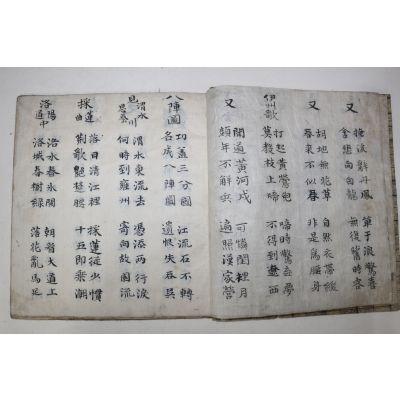 又
掩淚辭丹鳳 單于浪驚喜
含悲向白龍 無復舊時容
又
胡地無花草 自然衣帶緩
春來不似春 非是爲腰身
伊州歌
打起黃鶯兒 啼時驚妾夢
莫敎枝上啼 不得到遼西
又
聞道黃河戍 可憐閨裡月
頻年不解兵 遍照漢家營
八陣圖
功盖三分國 江流石不轉
名成八陣圖 遺恨失吞吳
見渭水
思秦川
渭水東流去 憑添兩行淚
何時到雍州 寄向故園流
採蓮曲
落日清江裡 採蓮從少慣
荊歌艶楚腰 十五卽乘潮
洛陽
道中
洛水春氷開 朝看大道上
洛城春樹綠 落花亂馬足